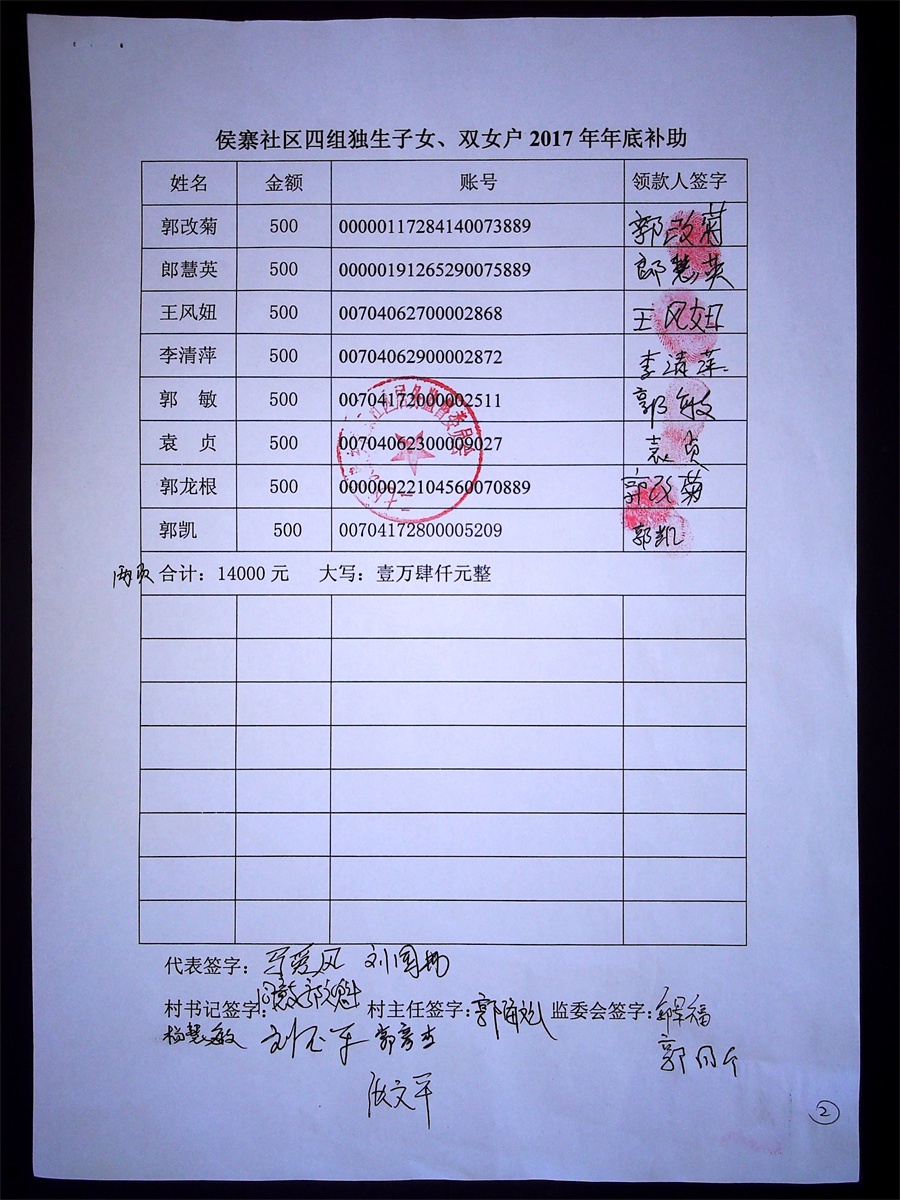 侯寨社区四组独生子女、双女户 2017 年年底补助
姓名 金额 账号 领款人签字
郭改菊 500 00000117284140073889 郭改菊
郎慧英 500 00000191265290075889 郎慧英
王风妞 500 00704062700002868 王风妞
李清萍 500 00704062900002872 李清萍
郭 敏 500 00704172000002511 郭敏
袁 贞 500 00704062300009027 袁贞
郭龙根 500 00000022104560070889 郭改菊
郭凯 500 00704172800005209 郭凯
两页 合计：14000 元 大写：壹万肆仟元整
代表签字：
村书记签字： 村主任签字： 监委会签字：
杨慧敏
②